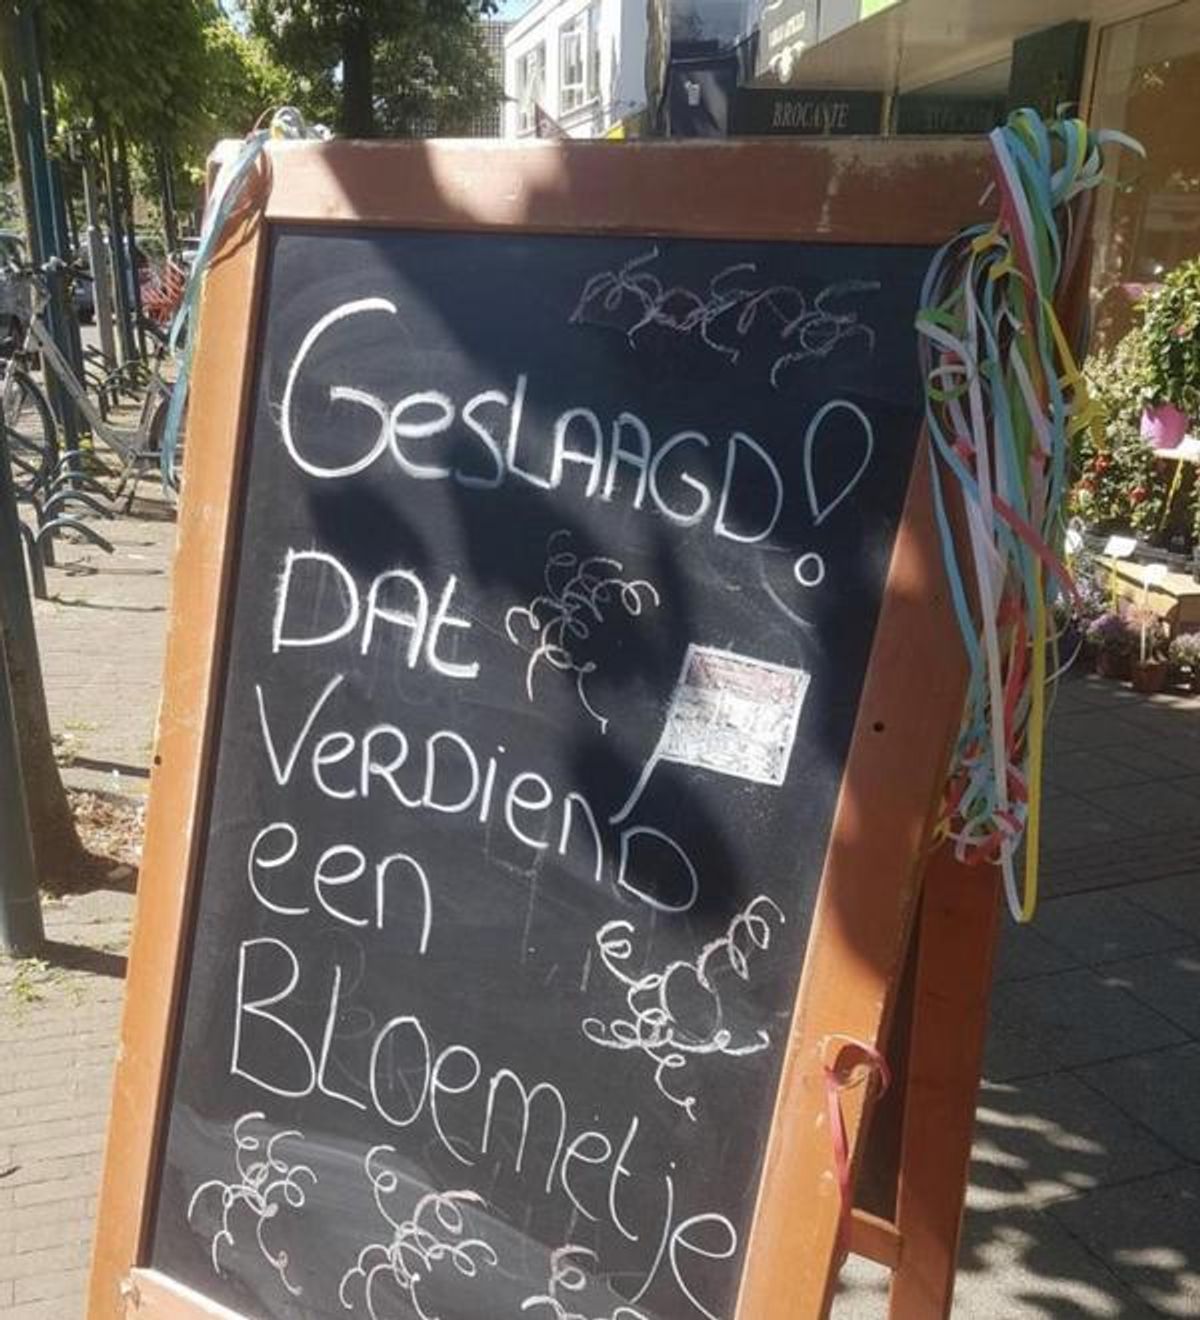 BROCANTE
GESLAAGD!
DAt
VERDienD
een
BLOemetje